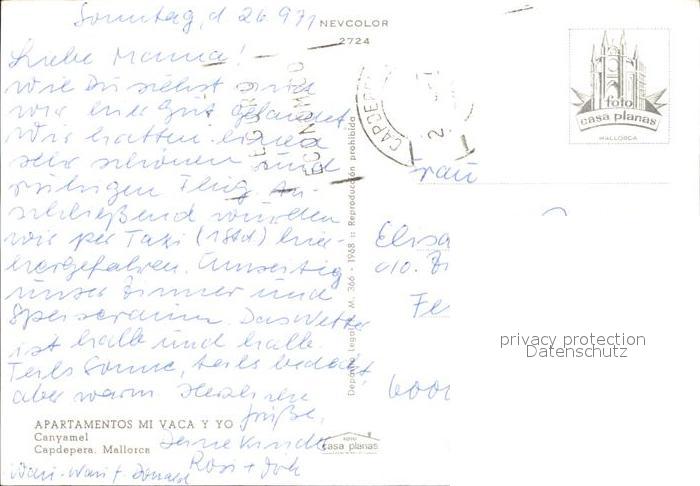 Sonntag, d 26 9 71
NEVCOLOR
2724
Liebe Mama!
Wie Du siehst sind
wir hier gut gelandet
Wir hatten einen
sehr schönen und
ruhigen Flug. An-
schließend wurden
wir per Taxi (1 Std) hier-
hergefahren.
unser Zimmer und
Speiseraum. Das Wetter
ist halb und halb.
Teils Sonne, teils bedeckt,
aber warm Herzliche
Grüße,
Deine Kinder
Rosi +
+ Donald
APARTAMENTOS MI VACA Y YO
Canyamel
Capdepera. Mallorca
foto
casa planas
Depósito Legal M. 366 - 1968 :: Reproducción prohibida
CAPDEPERA
foto
casa planas
MALLORCA
Frau
Elisa
c/o.
Fe
600
privacy protection
Datenschutz